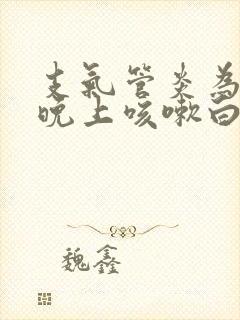 支氣管炎為
晚上咳嗽白
魏鑫